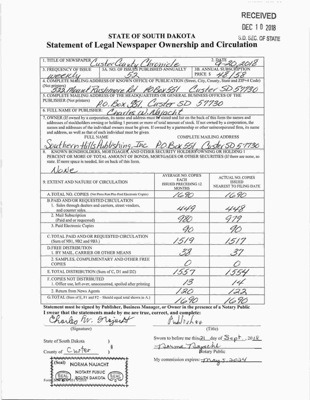 RECEIVED
DEC 10 2018
S.D. SEC. OF STATE
STATE OF SOUTH DAKOTA
Statement of Legal Newspaper Ownership and Circulation
1. TITLE OF NEWSPAPER
Custer County Chronicle
2. DATE
9-20-2018
3. FREQUENCY OF ISSUE
weekly
3A. NO. OF ISSUES PUBLISHED ANNUALLY
52
3B. ANNUAL SUBSCRIPTION
PRICE $ 48/58
4. COMPLETE MAILING ADDRESS OF KNOWN OFFICE OF PUBLICATION (Street, City, County, State and ZIP+4 Code)
(Not printers)
522 Mount Rushmore Rd PO Box 551 Custer SD 57730
5. COMPLETE MAILING ADDRESS OF THE HEADQUARTERS OF GENERAL BUSINESS OFFICES OF THE
PUBLISHER (Not printer)
P.O. Box 551 Custer SD 57730
6. FULL NAME OF PUBLISHER:
Charles W. Najacht
7. OWNER (If owned by a corporation, its name and address must be stated and
FULL NAME
COMPLETE MAILING ADDRESS
Southern Hills Publishing, Inc. PO Box 551 Custer SD 57730
8. KNOWN BONDHOLDERS, MORTGAGEES AND OTHER SECURITY HOLDERS OWNING OR HOLDING 1
PERCENT OR MORE OF TOTAL AMOUNT OF BONDS, MORTGAGES OR OTHER SECURITIES (If there are none, so
state. If more space is needed, list on back of this form.
None
9. EXTENT AND NATURE OF CIRCULATION
AVERAGE NO. COPIES
EACH
ISSUES PRECEDING 12
MONTHS
ACTUAL NO. COPIES
ISSUED
NEAREST TO FILING DATE
A. TOTAL NO. COPIES
1690
1690
B. PAID AND/OR REQUESTED CIRCULATION
1. Sales through dealers and carriers, street vendors,
and counter sales
449
448
2. Mail Subscription
(Paid and/or requested)
980
979
3. Paid Electronic Copies
90
90
C. TOTAL PAID AND/OR REQUESTED CIRCULATION
(Sum of 9B1, 9B2 and 9B3.)
1519
1517
D. FREE DISTRIBUTION
1. BY MAIL, CARRIER OR OTHER MEANS
38
37
2. SAMPLES, COMPLIMENTARY AND OTHER FREE
COPIES
0
0
E. TOTAL DISTRIBUTION (Sum of C, D1 and D2)
1557
1554
F. COPIES NOT DISTRIBUTED
1. Office use, left over, unaccounted, spoiled after printing
13
14
2. Return from News Agents
120
122
G. TOTAL (Sum of E, F1 and F2 - Should equal total shown in A.)
1690
1690
Statement must be signed by Publisher, Business Manager, or Owner in the presence of a Notary Public
I swear that the statements made by me are true, correct, and complete:
Charles W. Najacht
Publisher
(Signature)
(Title)
State of South Dakota )
County of Custer )
Sworn to before me this 21 day of Sept, 2018
Norma Najacht
Notary Public
(Seal)
My commission expires:
NORMA NAJACHT
NOTARY PUBLIC
SOUTH DAKOTA
SEAL
SEAL